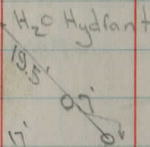 H₂O Hydrant
19.5'
7'
17'